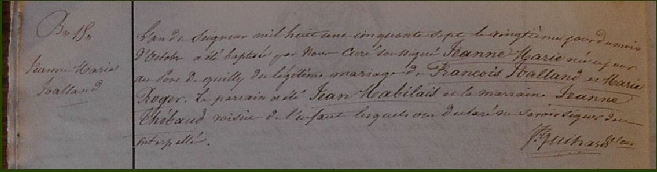 Bn 15e
Jeanne Marie
Halland
L'an du Seigneur mil huit cent cinquante sept le vingtième jour du mois
d'Octobre a été baptisée par Nous Curé soussigné Jeanne Marie née ce jour
au de quilly du légitime mariage de François Halland et Marie
Roger. Le parrain a été Jean Habilais et la marraine Jeanne
Thibaud voisine de l'enfant lesquels ont déclaré ne savoir signer de ce
interpellé.
Guihard